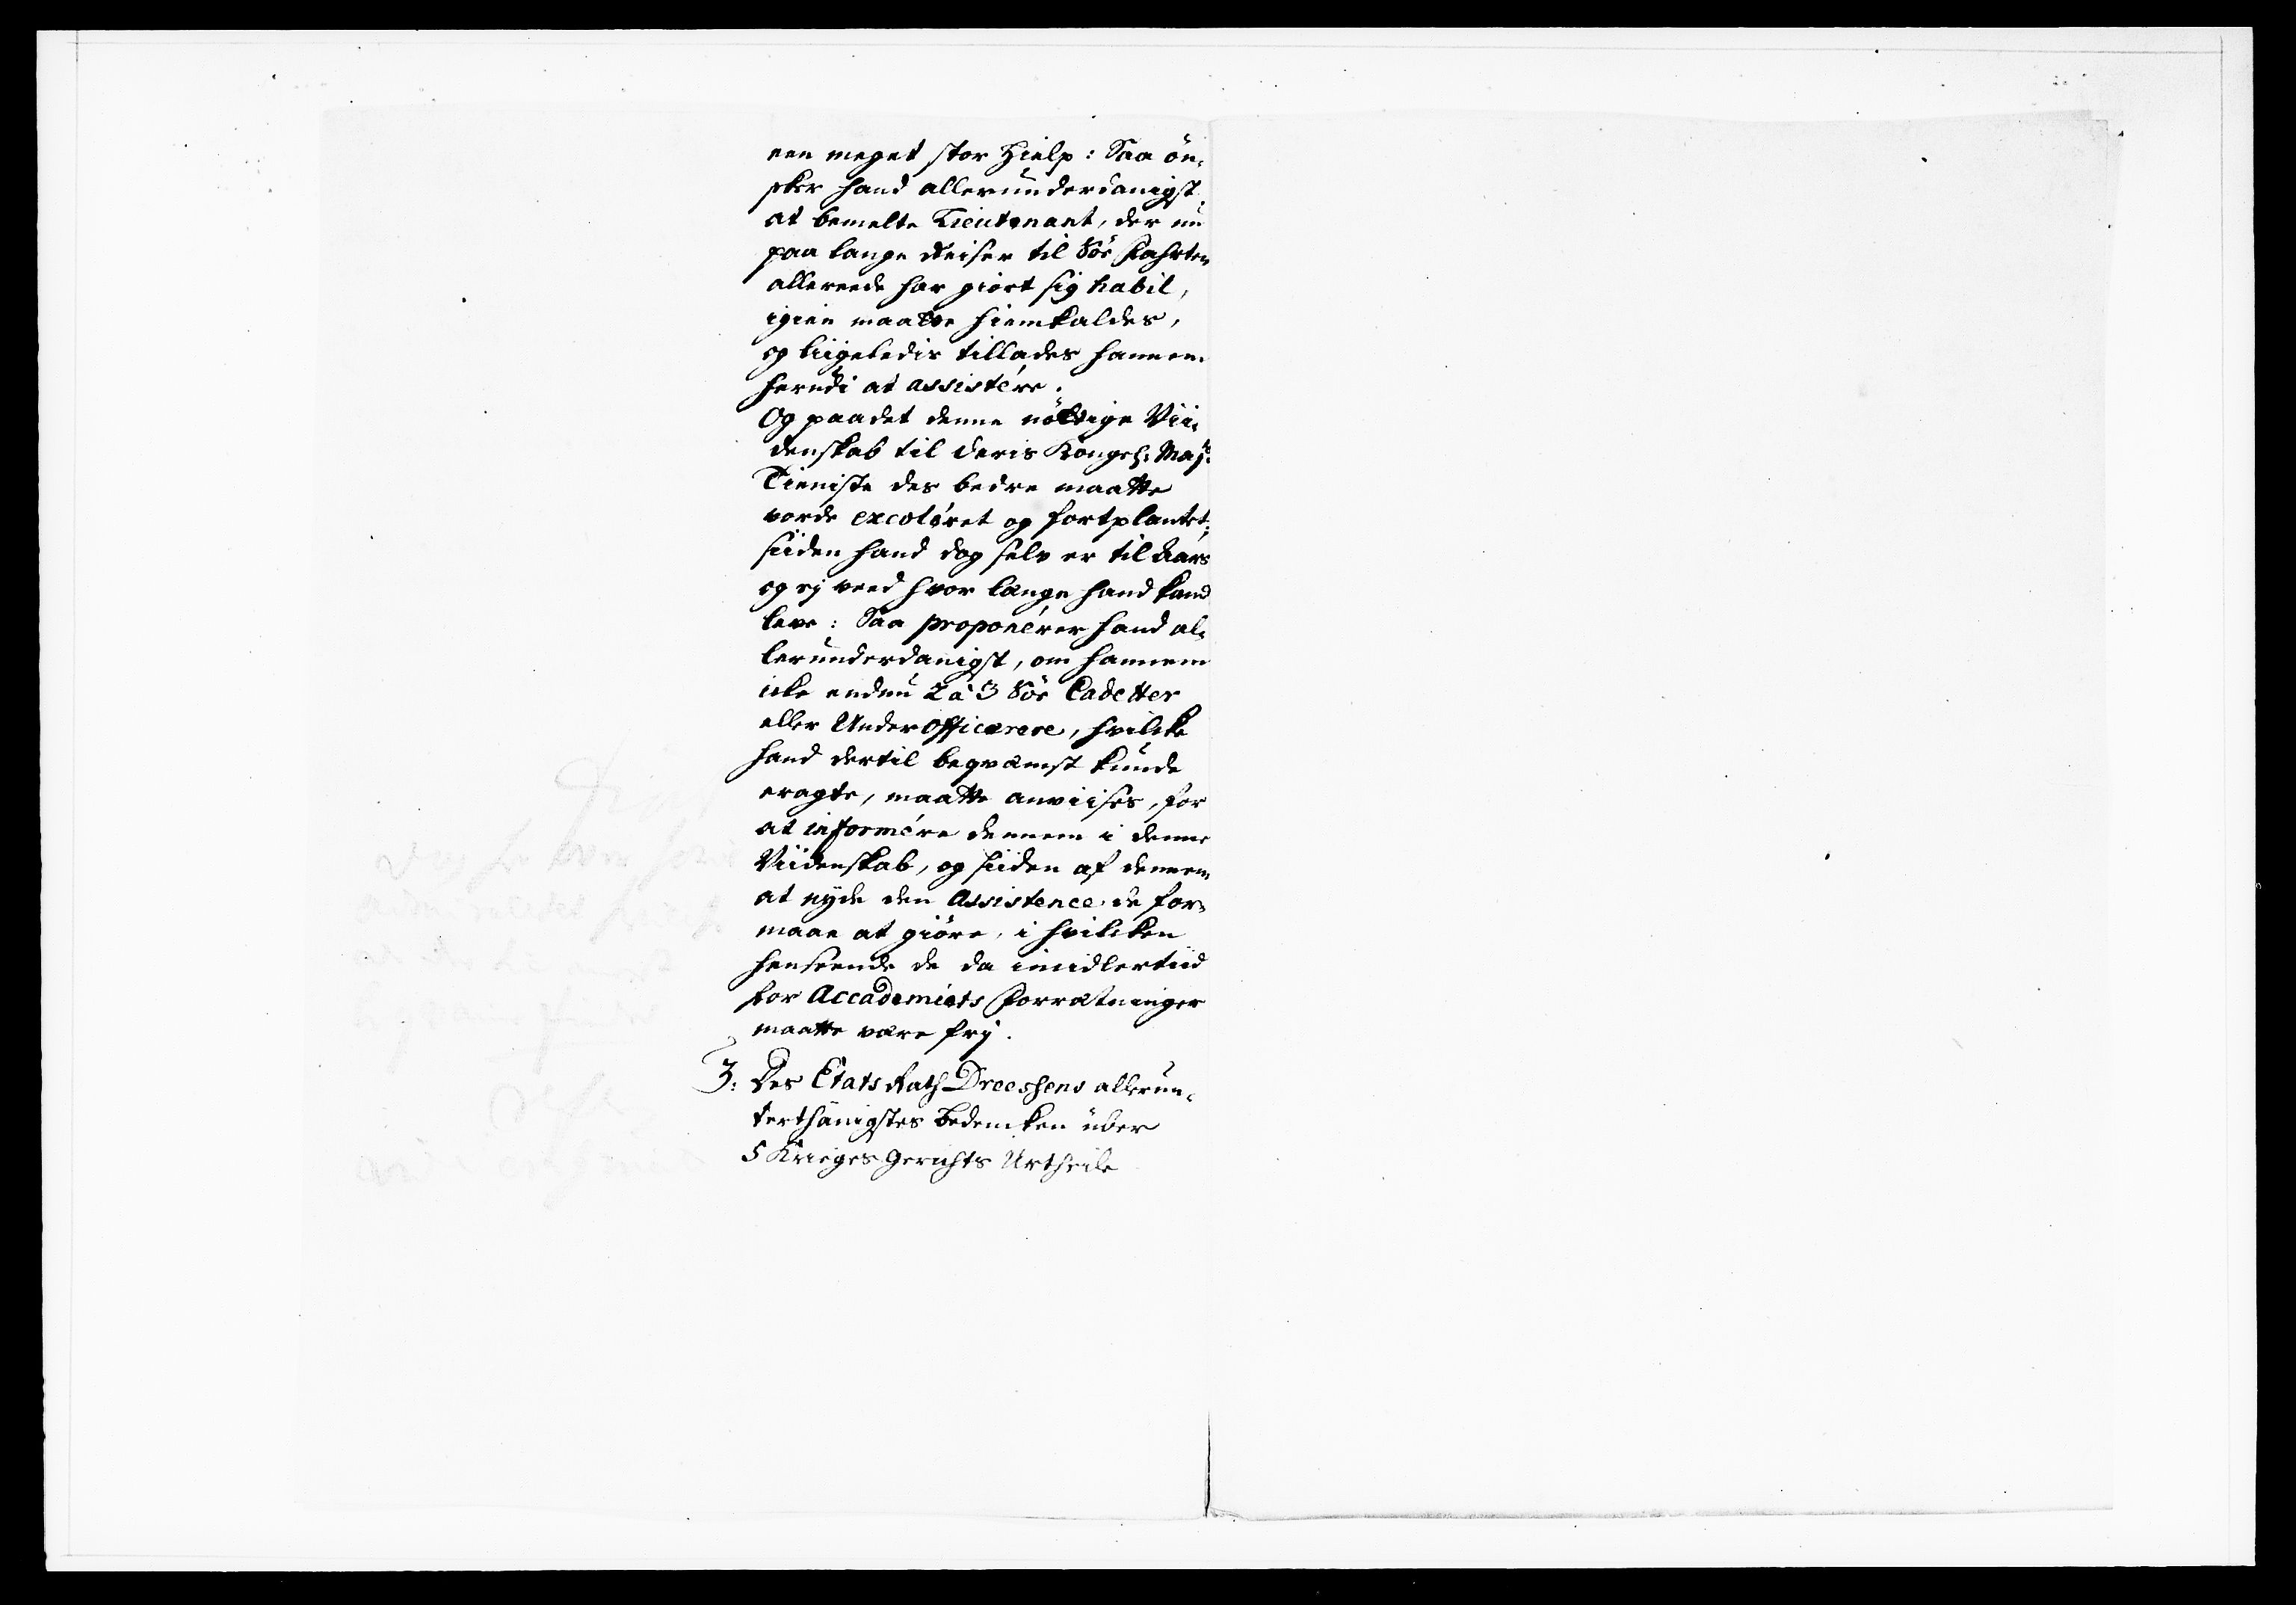 een meget stor Hielp: Saa ön-
sker hand allerunderdanigst,
at bemelte Lieutenant, der nu
paa lange Reiser til Söe Farten
allereede har giört sig habil,
igien maatte hiemkaldes,
og liigeledis tillades hannem
herudi at assistére.
Og paadet denne nöttige Vii-
denskab til deris Kongel: Maj:
Tieniste des bedre maatte
vorde excoléret og fortplantet;
siiden hand dog selv er til Aars
og ej veed hvor længe hand kand
leve: Saa proponérer hand al-
lerunderdanigst, om hannem
icke endnu 2 à 3 Söe Cadetter
eller Underofficerere, hvilcke
hand dertil beqvæmst kunde
eragte, maatte anviises, for
at informére dennem i denne
Viidenskab, og siiden af dennem
at nyde den Assistence de for-
maae at giöre, i hvilcken
henseende de da imidlertiid
for Accademiets Forrætninger
maatte være frij.
3: Des Etats Rath Dreeshens allerun-
terthänigstes Bedencken über
5 Krieges Gerichts Urtheile